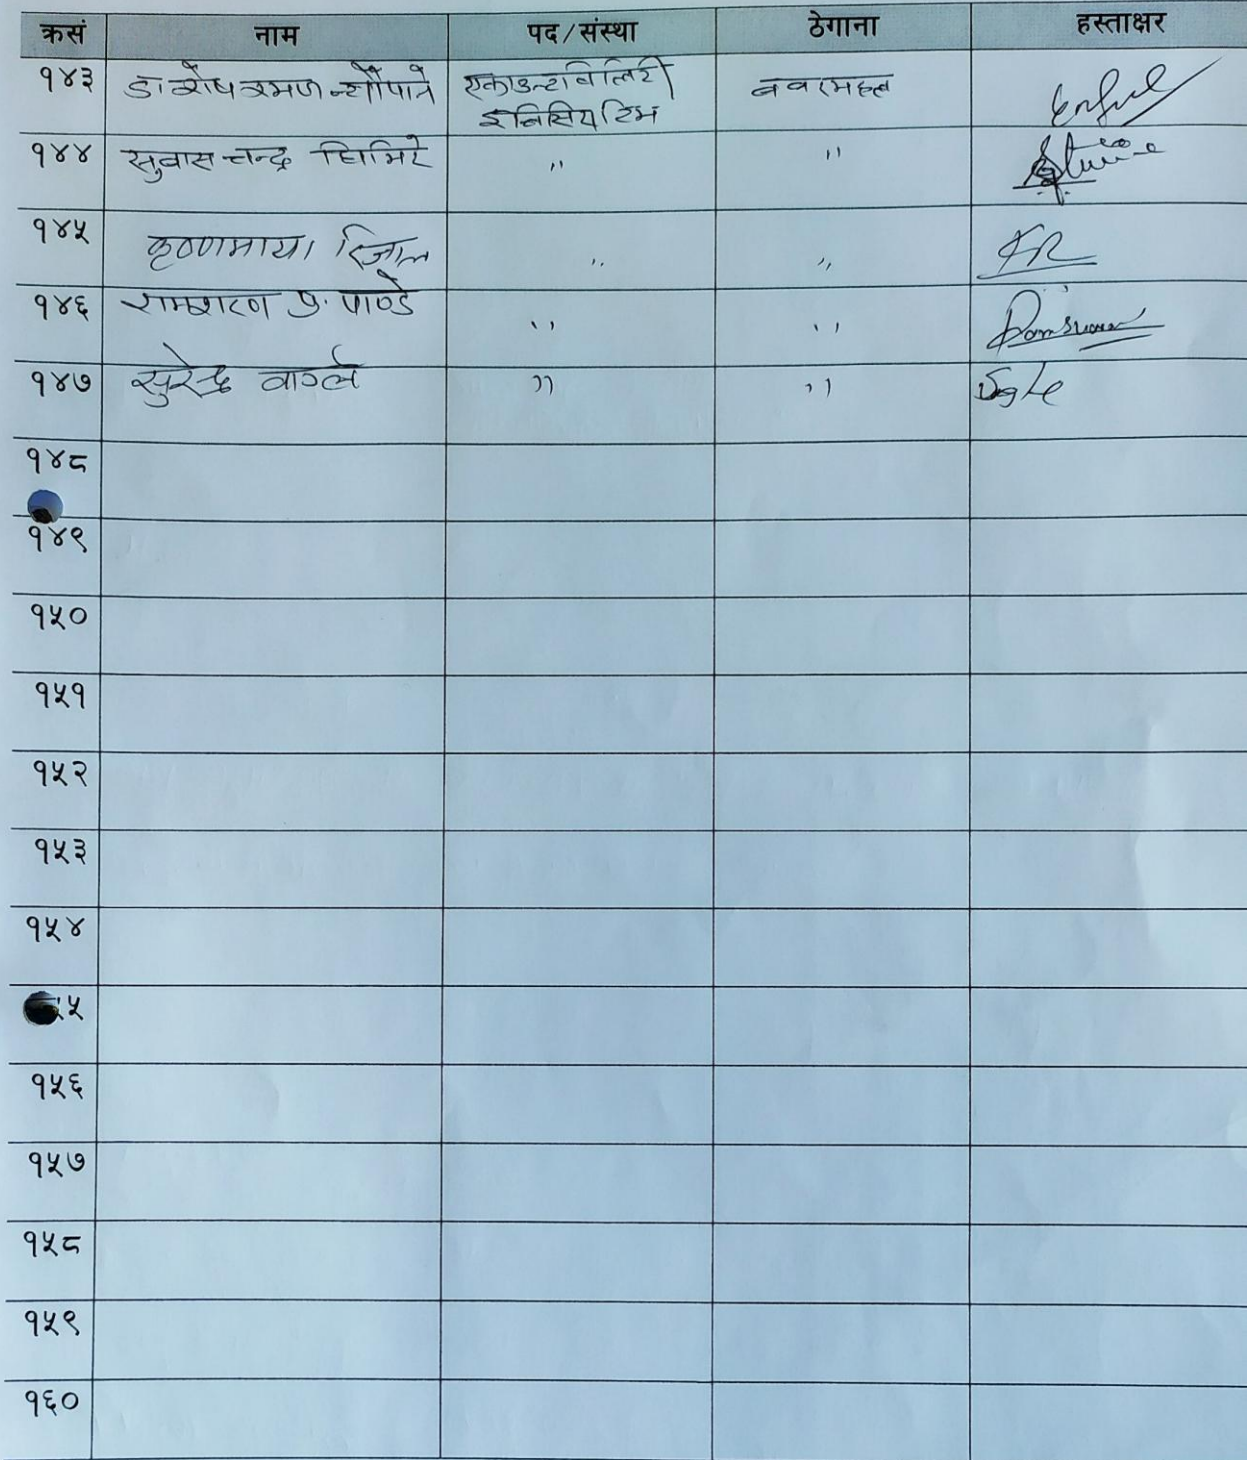 क्रसं नाम पद/संस्था ठेगाना हस्ताक्षर
१४३ डा शेष रमण न्यौपाने एकाउन्टाबिलिटी बबरमहल
इनिसियटिभ
१४४ सुवास चन्द्र घिमिरे " "
१४५ कृष्णमाया रिजाल " " KR
१४६ रामशरण प्र. पाण्डे " "
१४७ सुरेन्द्र वाग्ले " "
१४८
१४९
१५०
१५१
१५२
१५३
१५४
५
१५६
१५७
१५८
१५९
१६०